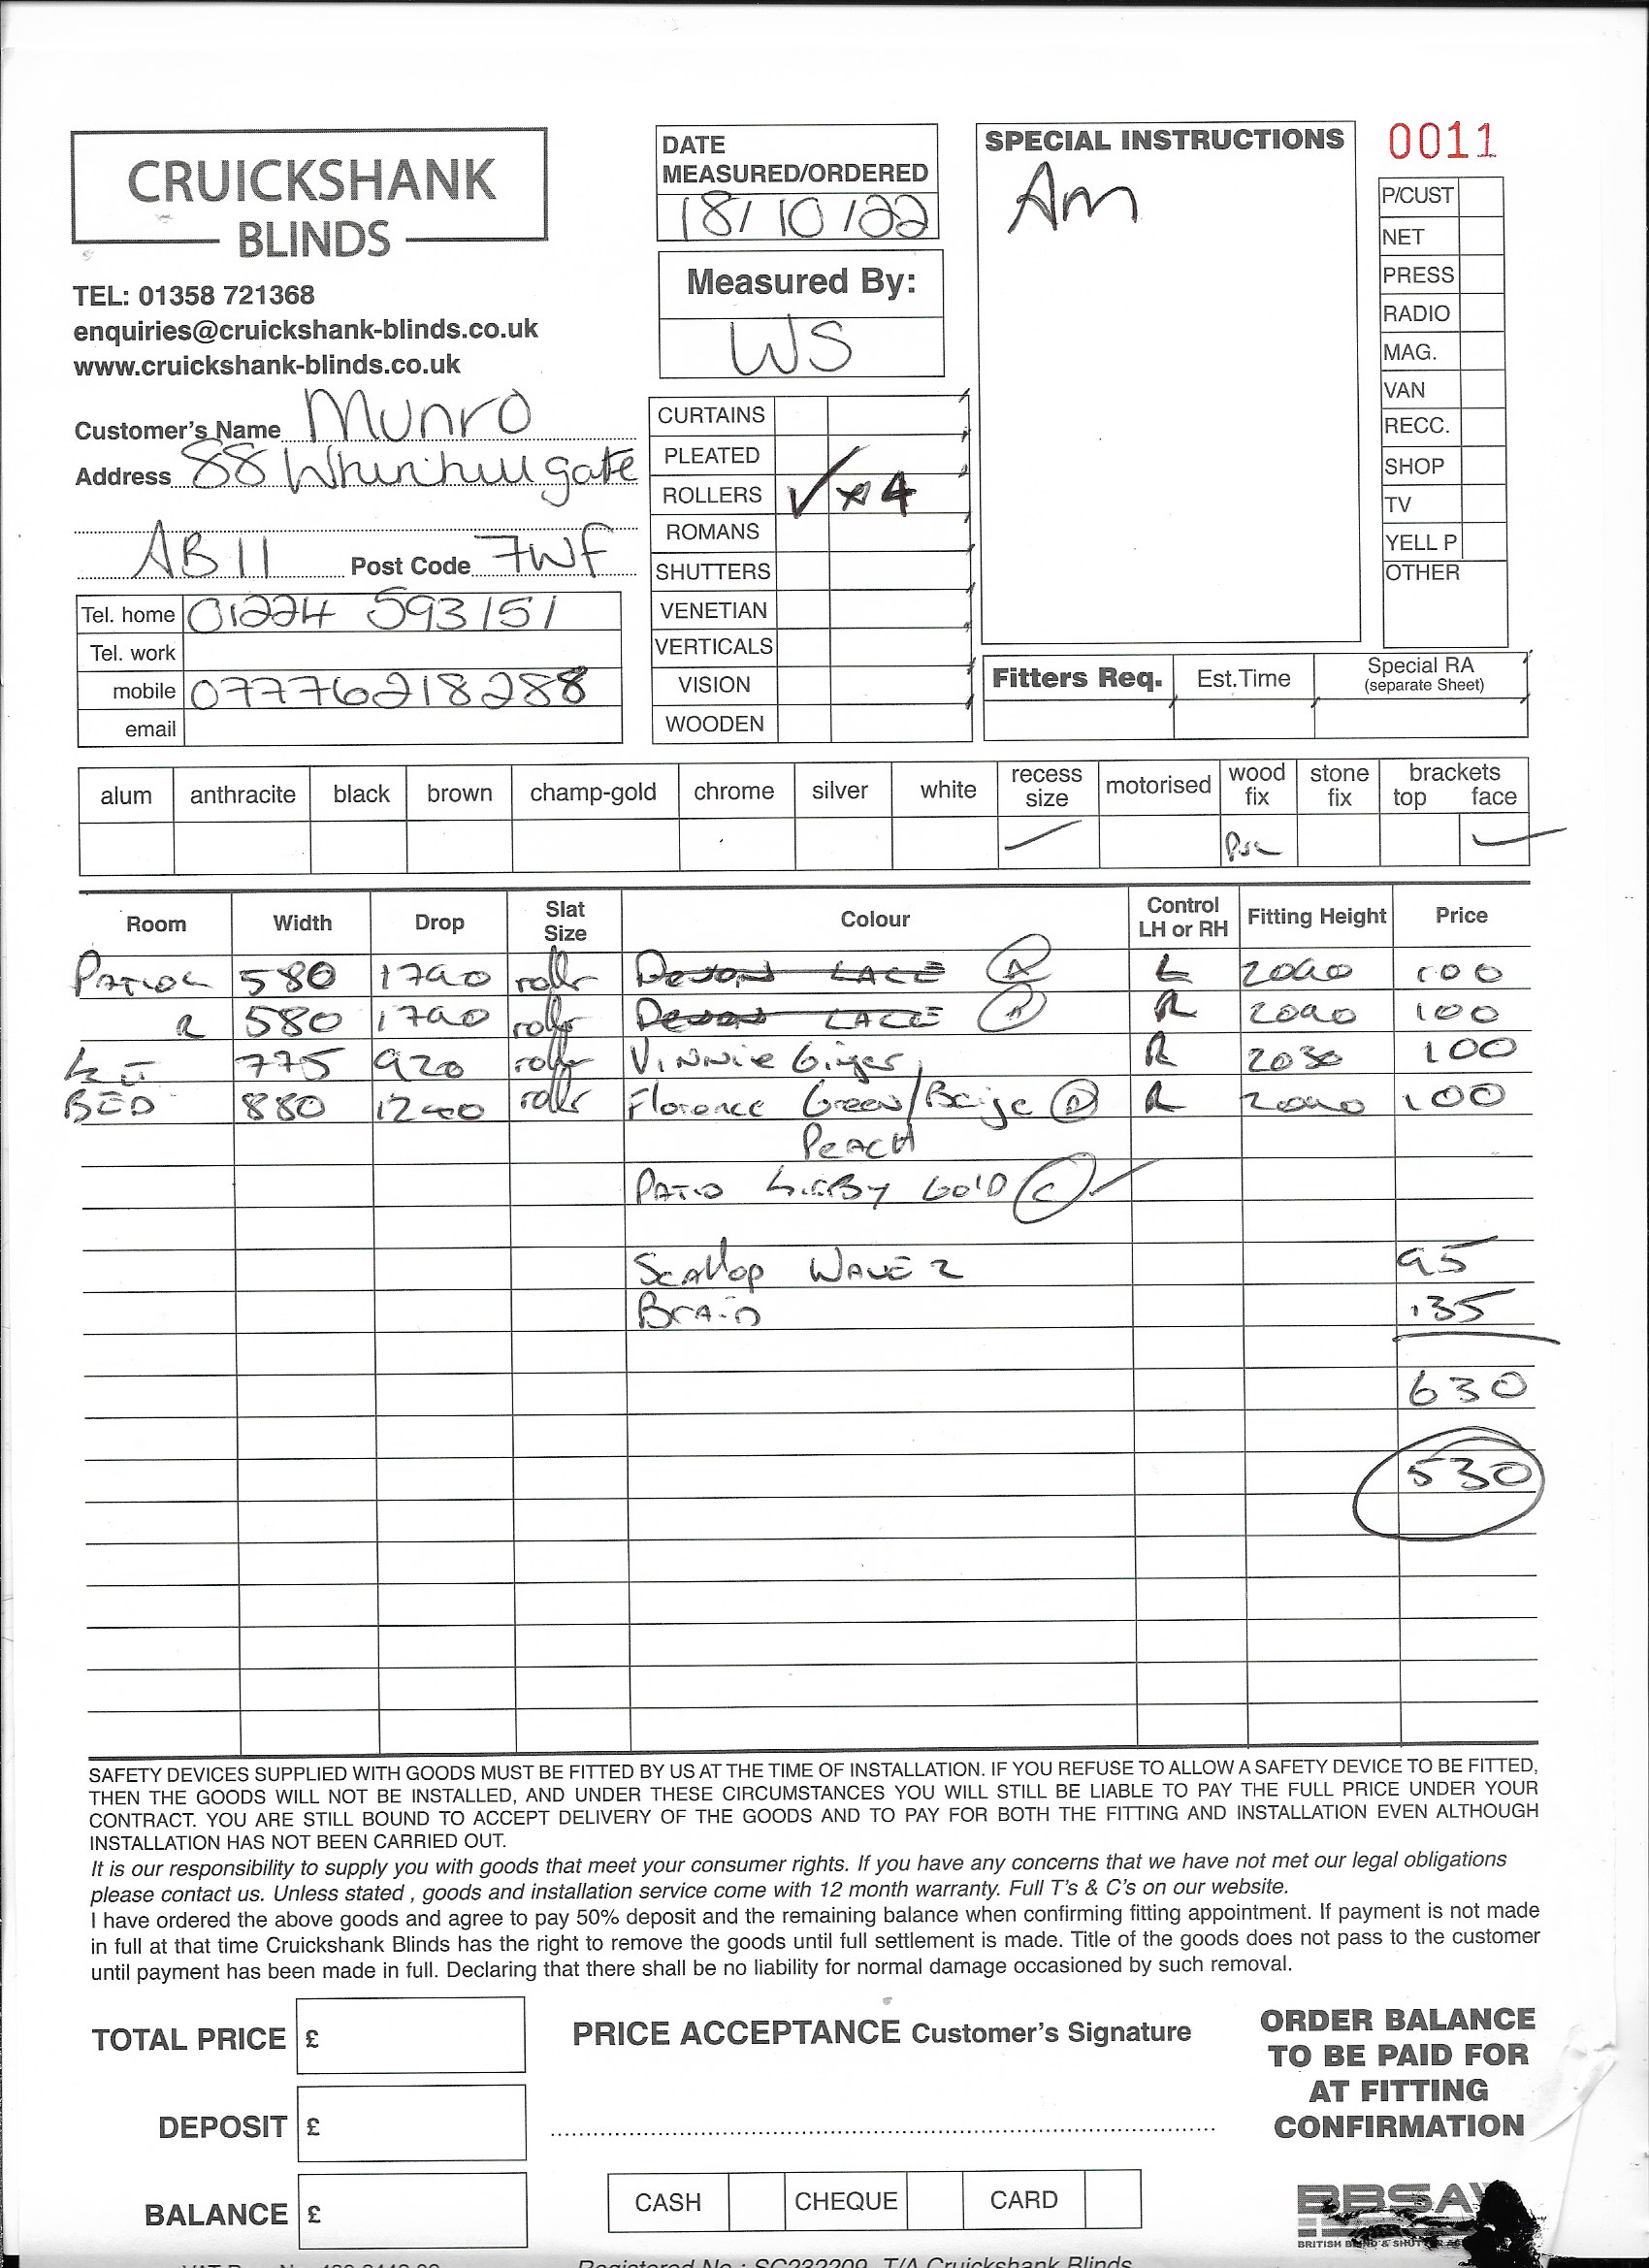 CRUICKSHANK
BLINDS
TEL: 01358 721368
enquiries@cruickshank-blinds.co.uk
www.cruickshank-blinds.co.uk
Customer's Name Munro
Address 88 Whinhill gate
AB11 Post Code 7WF
Tel. home 01224 593151
Tel. work
mobile 07776218288
email
DATE
MEASURED/ORDERED
18/10/22
Measured By:
WS
CURTAINS
PLEATED
ROLLERS ✓ x4
ROMANS
SHUTTERS
VENETIAN
VERTICALS
VISION
WOODEN
SPECIAL INSTRUCTIONS
Am
0011
P/CUST
NET
PRESS
RADIO
MAG.
VAN
RECC.
SHOP
TV
YELL P
OTHER
Fitters Req. Est.Time Special RA
(separate Sheet)
alum anthracite black brown champ-gold chrome silver white recess size motorised wood fix stone fix brackets top face
Room Width Drop Slat Size Colour Control LH or RH Fitting Height Price
PATIO L 580 1790 roller Devon LACE A L 2090 100
R 580 1790 roller Devon LACE A R 2090 100
KIT 775 920 roller Vinnie Ginger R 2030 100
BED 880 1200 roller Florence Green/Beige D R 2090 100
PEACH
PATIO KIRBY GOLD C ✓
Scallop WAVE 2 95
Braid 135
630
530
SAFETY DEVICES SUPPLIED WITH GOODS MUST BE FITTED BY US AT THE TIME OF INSTALLATION. IF YOU REFUSE TO ALLOW A SAFETY DEVICE TO BE FITTED,
THEN THE GOODS WILL NOT BE INSTALLED, AND UNDER THESE CIRCUMSTANCES YOU WILL STILL BE LIABLE TO PAY THE FULL PRICE UNDER YOUR
CONTRACT. YOU ARE STILL BOUND TO ACCEPT DELIVERY OF THE GOODS AND TO PAY FOR BOTH THE FITTING AND INSTALLATION EVEN ALTHOUGH
INSTALLATION HAS NOT BEEN CARRIED OUT.
It is our responsibility to supply you with goods that meet your consumer rights. If you have any concerns that we have not met our legal obligations
please contact us. Unless stated , goods and installation service come with 12 month warranty. Full T's & C's on our website.
I have ordered the above goods and agree to pay 50% deposit and the remaining balance when confirming fitting appointment. If payment is not made
in full at that time Cruickshank Blinds has the right to remove the goods until full settlement is made. Title of the goods does not pass to the customer
until payment has been made in full. Declaring that there shall be no liability for normal damage occasioned by such removal.
TOTAL PRICE £
DEPOSIT £
BALANCE £
PRICE ACCEPTANCE Customer's Signature
CASH CHEQUE CARD
ORDER BALANCE
TO BE PAID FOR
AT FITTING
CONFIRMATION
BBSA
Registered No : SC232209 T/A Cruickshank Blinds